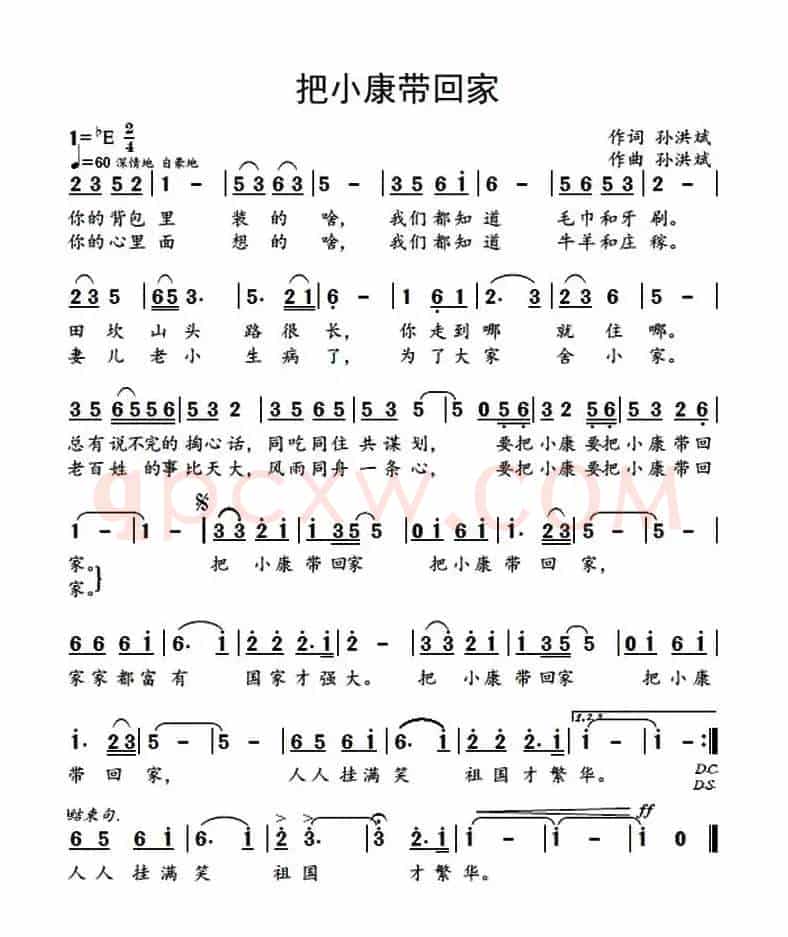 把小康带回家
1=♭E 2/4
作词 孙洪斌
♩=60 深情地 自豪地
作曲 孙洪斌
2 3 5 2 | 1 - | 5 3 6 3 | 5 - | 3 5 6 i | 6 - | 5 6 5 3 | 2 - |
你的背包里 装的啥， 我们都知道 毛巾和牙刷。
你的心里面 想的啥， 我们都知道 牛羊和庄稼。
2 3 5 | 6 5 3· | 5· 2 1 | 6 - | 1 6 1 | 2· 3 | 2 3 6 | 5 - |
田坎山头 路很长， 你走到哪 就住哪。
妻儿老小 生病了， 为了大家 舍小家。
3 5 6 5 5 6 | 5 3 2 | 3 5 3 5 | 5 3 5 | 5 0 5 6 | 3 2 5 6 | 5 3 2 2 |
总有说不完的掏心话，同吃同住共谋划， 要把小康要把小康带回
老百姓的事比天大，风雨同舟一条心， 要把小康要把小康带回
qpcxw.COM
1 - | 1 - | 3 3 2 i | i 3 5 5 | 0 i 6 i | i· 2 3 | 5 - | 5 - |
家。 把小康带回家 把小康带回家，
家。
6 6 6 i | 6· i | 2 2 2· i | 2 - | 3 3 2 i | i 3 5 5 | 0 i 6 i |
家家都富有 国家才强大。 把小康带回家 把小康
1.2.3
i· 2 3 | 5 - | 5 - | 6 5 6 i | 6· i | 2 2 2· i | i - | i - :‖
带回家， 人人挂满笑 祖国才繁华。 D.C.
D.S.
结束句.
ff
6 5 6 i | 6· i | 2 3· | 3 2· i | i - | i - | i 0 ‖
人人挂满笑 祖国 才繁华。